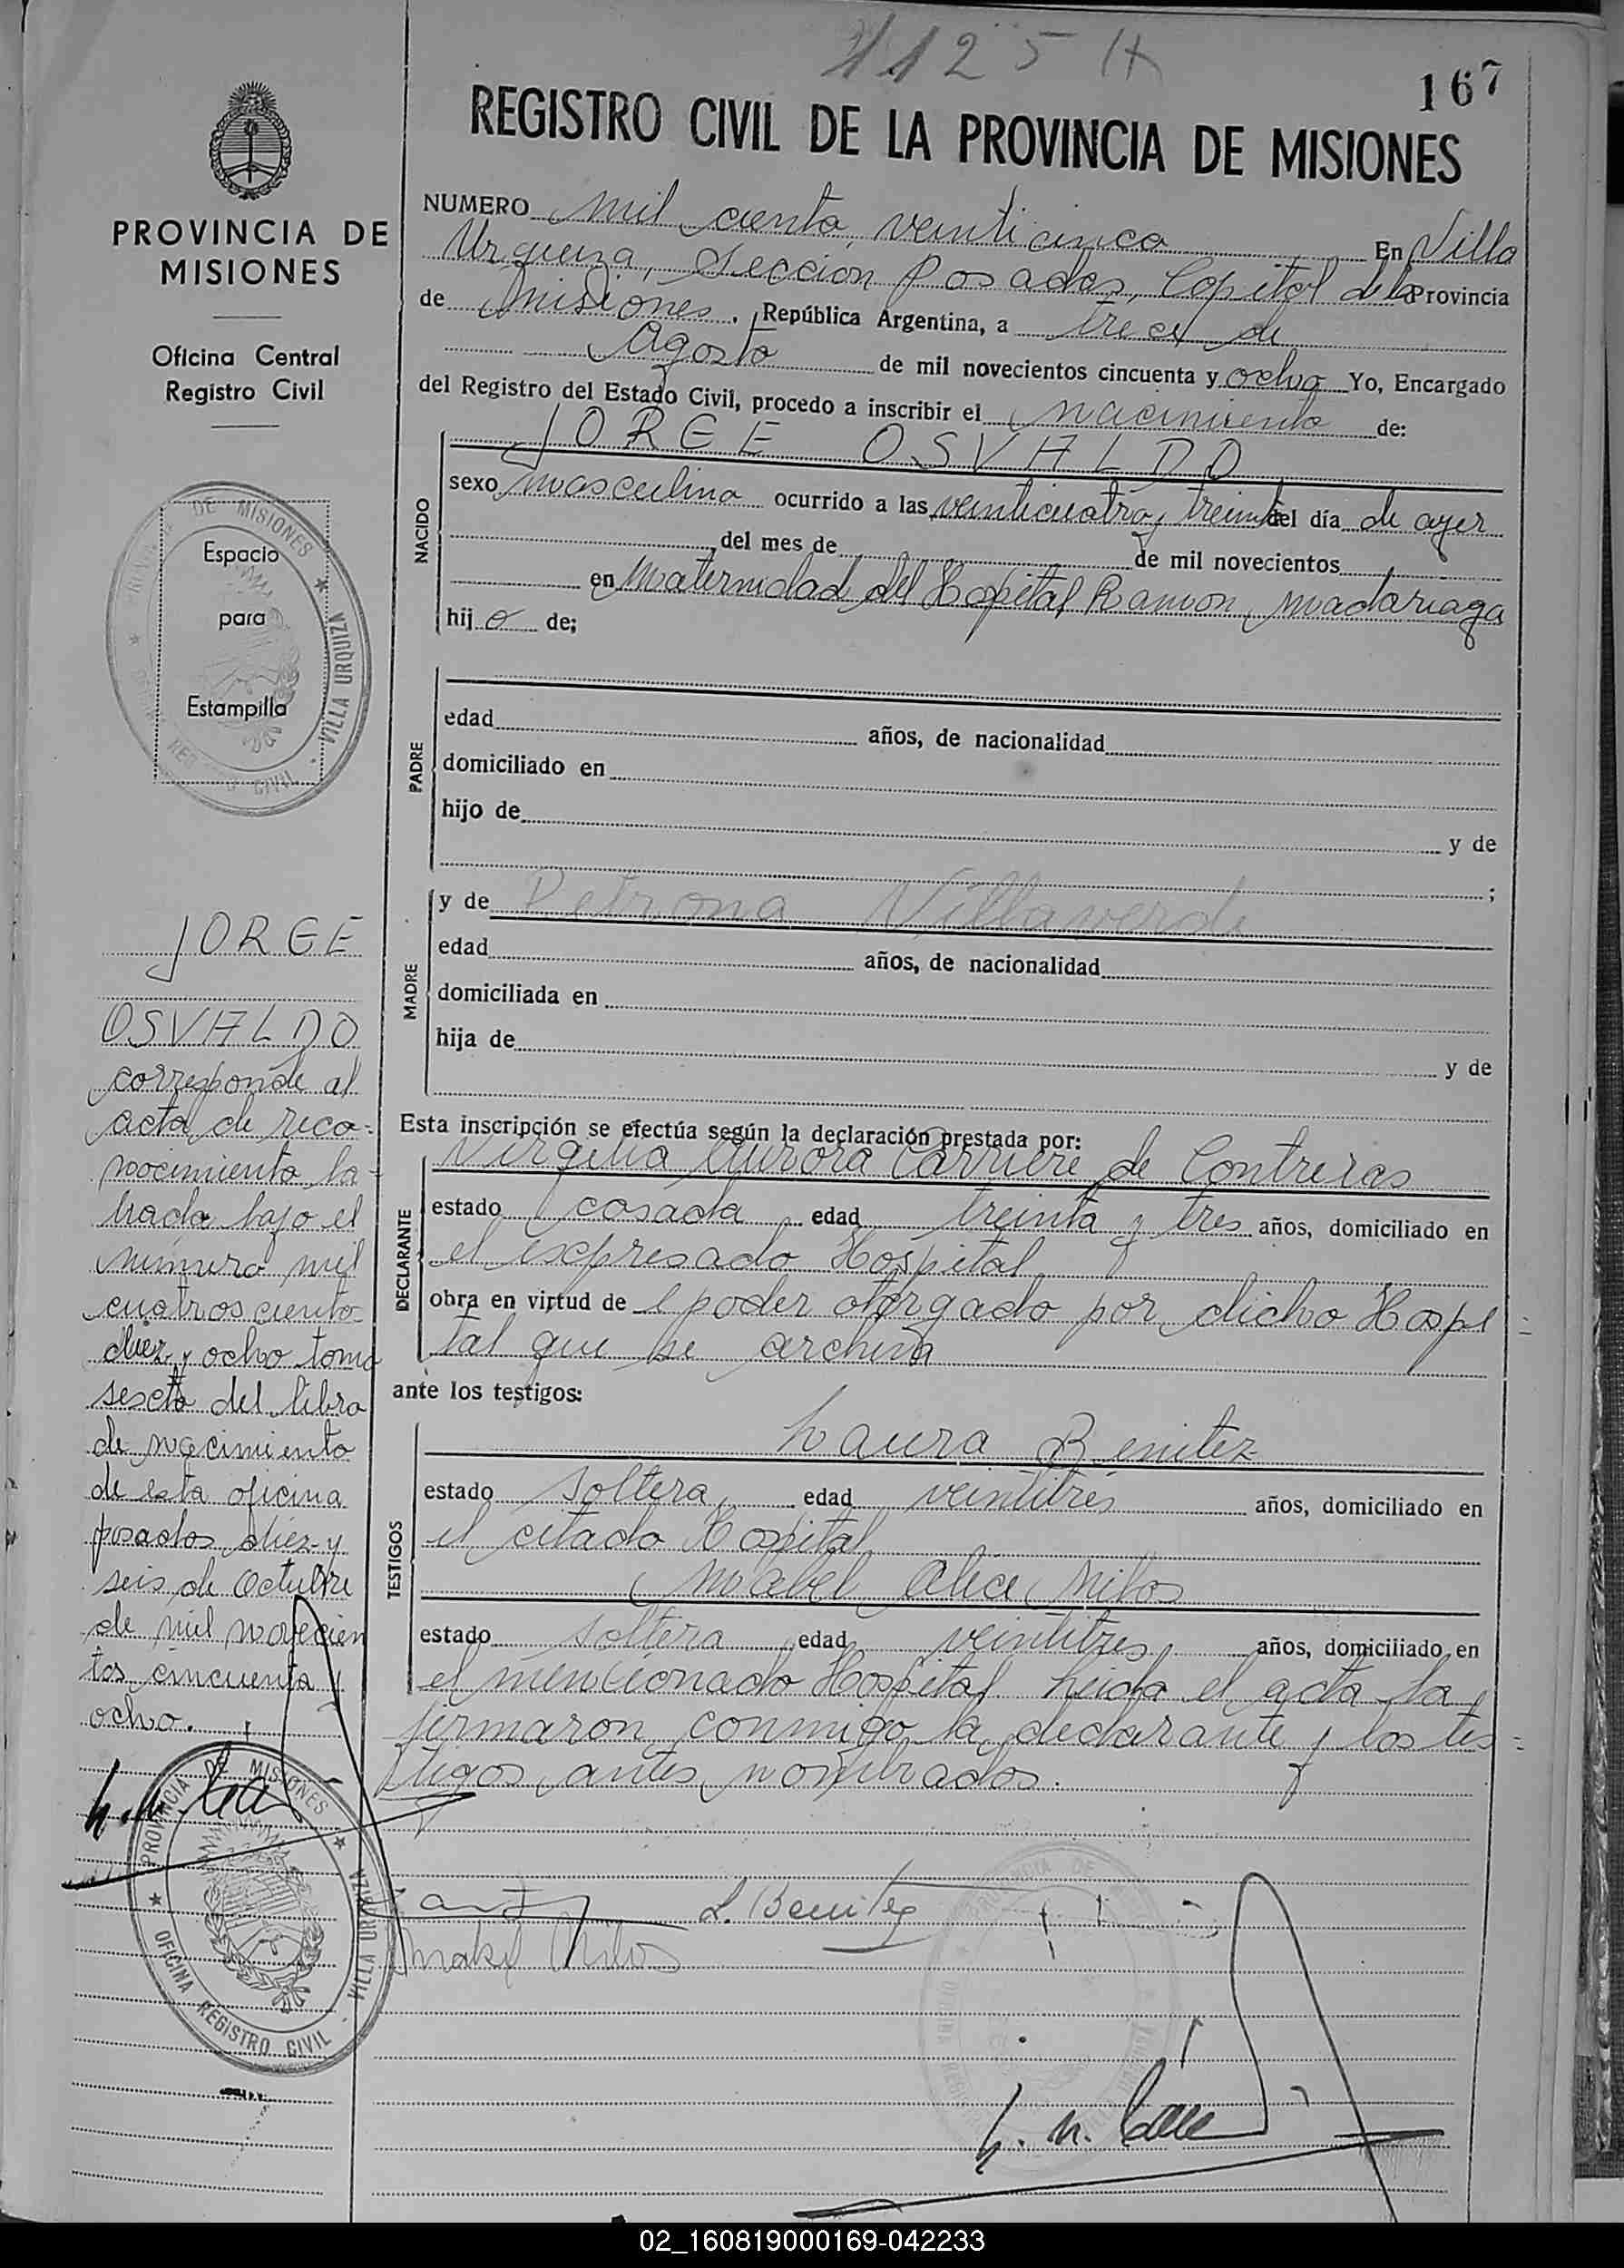 1125
167
REGISTRO CIVIL DE LA PROVINCIA DE MISIONES
PROVINCIA DE
MISIONES
Oficina Central
Registro Civil
NUMERO mil ciento veinticinco En Villa
Urquiza, Sección Posadas, Capital de la Provincia
de Misiones. República Argentina, a trece de
Agosto de mil novecientos cincuenta y ocho Yo, Encargado
del Registro del Estado Civil, procedo a inscribir el nacimiento de:
NACIDO
JORGE OSVALDO
sexo masculino ocurrido a las veinticuatro y treinta del día de ayer
del mes de de mil novecientos
en Maternidad del Hospital Ramon Madariaga
hij o de;
Espacio
para
Estampilla
DE MISIONES ★ VILLA URQUIZA
CIVIL
PADRE
edad años, de nacionalidad
domiciliado en
hijo de
y de
;
MADRE
y de Petrona Villaverde
edad años, de nacionalidad
domiciliada en
hija de
y de
Esta inscripción se efectúa según la declaración prestada por:
DECLARANTE
Virginia Aurora Carriere de Contreras
estado casada edad treinta y tres años, domiciliado en
el expresado Hospital
obra en virtud de l poder otorgado por dicho Hospi=
tal que se archiva
ante los testigos:
TESTIGOS
Laura Benitez
estado soltera edad veintitrés años, domiciliado en
el citado Hospital
Mabel Alice Milos
estado soltera edad veintitres años, domiciliado en
el mencionado Hospital. Leida el acta la
firmaron conmigo la declarante y los tes=
tigos antes nombrados.
L. Benitez
Mabel Milos
JORGE
OSVALDO
corresponde al
acta de reco=
nocimiento la=
brada bajo el
número mil
cuatrosciento
diez y ocho tomo
sexto del libro
de nacimiento
de esta oficina
posadas diez y
seis de Octubre
de mil novecien
tos cincuenta y
ocho.
PROVINCIA DE MISIONES ★ VILLA URQUIZA
★ OFICINA REGISTRO CIVIL
02_160819000169-042233